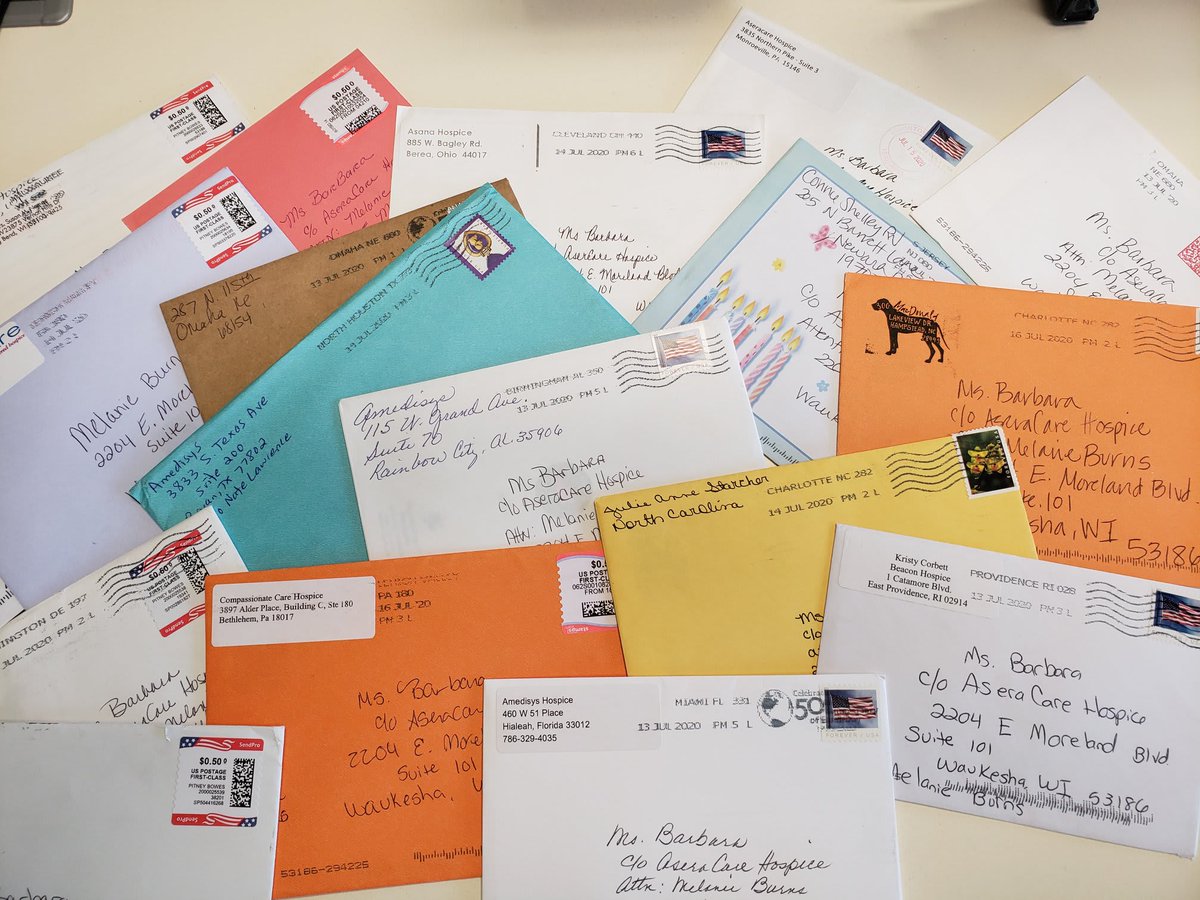 Aseracare Hospice
3835 Northern Pike - Suite 3
Monroeville, PA, 15146
Ms. Barbara
SendPro
$0.50⁰
US POSTAGE
FIRST-CLASS
PITNEY BOWES
$0.50⁰
US POSTAGE
FIRST-CLASS
FROM
Ms. BarBara
c/o AseraCare
Melanie
Asana Hospice
885 W. Bagley Rd.
Berea, Ohio 44017
CLEVELAND OH 440
14 JUL 2020 PM 6 L
Ms Barbara
Hospice
E. Moreland Blvd
101
OMAHA
NE 680
13 JUL 2020
PM
53186-294225
Ms. Barbara
c/o Asera
Attn: Melanie
2204 E. More
SendPro
$0.50⁰
US POSTAGE
FIRST-CLASS
PITNEY BOWES
Melanie Burn
2204 E. Morel
Suite 10
OMAHA NE 680
13 JUL 2020 PM 1
287 N. 115th
Omaha, Ne
68154
NORTH HOUSTON TX 773
14 JUL 2020 PM 3 L
Amedisys
3833 S. Texas Ave
Suite 200
TX 77802
Nate Lawrence
Connie Shelley RN
N Barrett
Newark
BIRMINGHAM AL 350
13 JUL 2020 PM 5 L
Amedisys
115 W. Grand Ave.
Suite 70
Rainbow City, AL. 35906
Ms Barbara
c/o AseraCare Hospice
Attn: Melanie
2204 E.
MacDonald
LAKEVIEW DR
HAMPSTEAD, NC
CHARLOTTE NC 282
16 JUL 2020 PM 2 L
Ms. Barbara
c/o AseraCare Hospice
Melanie Burns
E. Moreland Blvd
Suite, 101
sha, WI
53186
Julie Anne Starcher
North Carolina
CHARLOTTE NC 282
14 JUL 2020 PM 2 L
Kristy Corbett
Beacon Hospice
1 Catamore Blvd.
East Providence, RI 02914
PROVIDENCE RI 028
13 JUL 2020 PM 3 L
Ms. Barbara
c/o AseraCare Hospice
2204 E Moreland Blvd
Suite 101
Waukesha, WI 53186
Melanie Burns
INGTON DE 197
JUL 2020 PM 2 L
$0.50⁰
US POSTAGE
FIRST-CLASS
SendPro
Barbara
Compassionate Care Hospice
3897 Alder Place, Building C, Ste 180
Bethlehem, Pa 18017
PA 180
16 JUL '20
PM 3 L
US POSTAGE
FIRST-CLASS
Ms. Barbara
c/o AseraCar
2204 E. More
Suite 101
Waukesha,
53186-294225
SendPro
$0.50⁰
US POSTAGE
FIRST-CLASS
PITNEY BOWES
2000025539
38201
SP504416268
SendPro
Amedisys Hospice
460 W 51 Place
Hialeah, Florida 33012
786-329-4035
MIAMI FL 331
13 JUL 2020 PM 5 L
FOREVER / USA
Ms. Barbara
c/o AseraCare Hospice
Attn: Melanie Burns